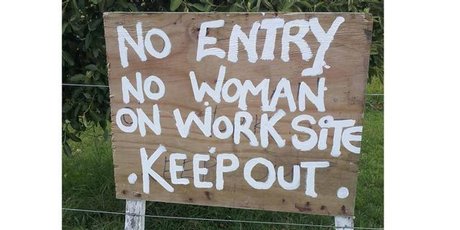 NO ENTRY
NO WOMAN
ON WORKSITE
.KEEP OUT.